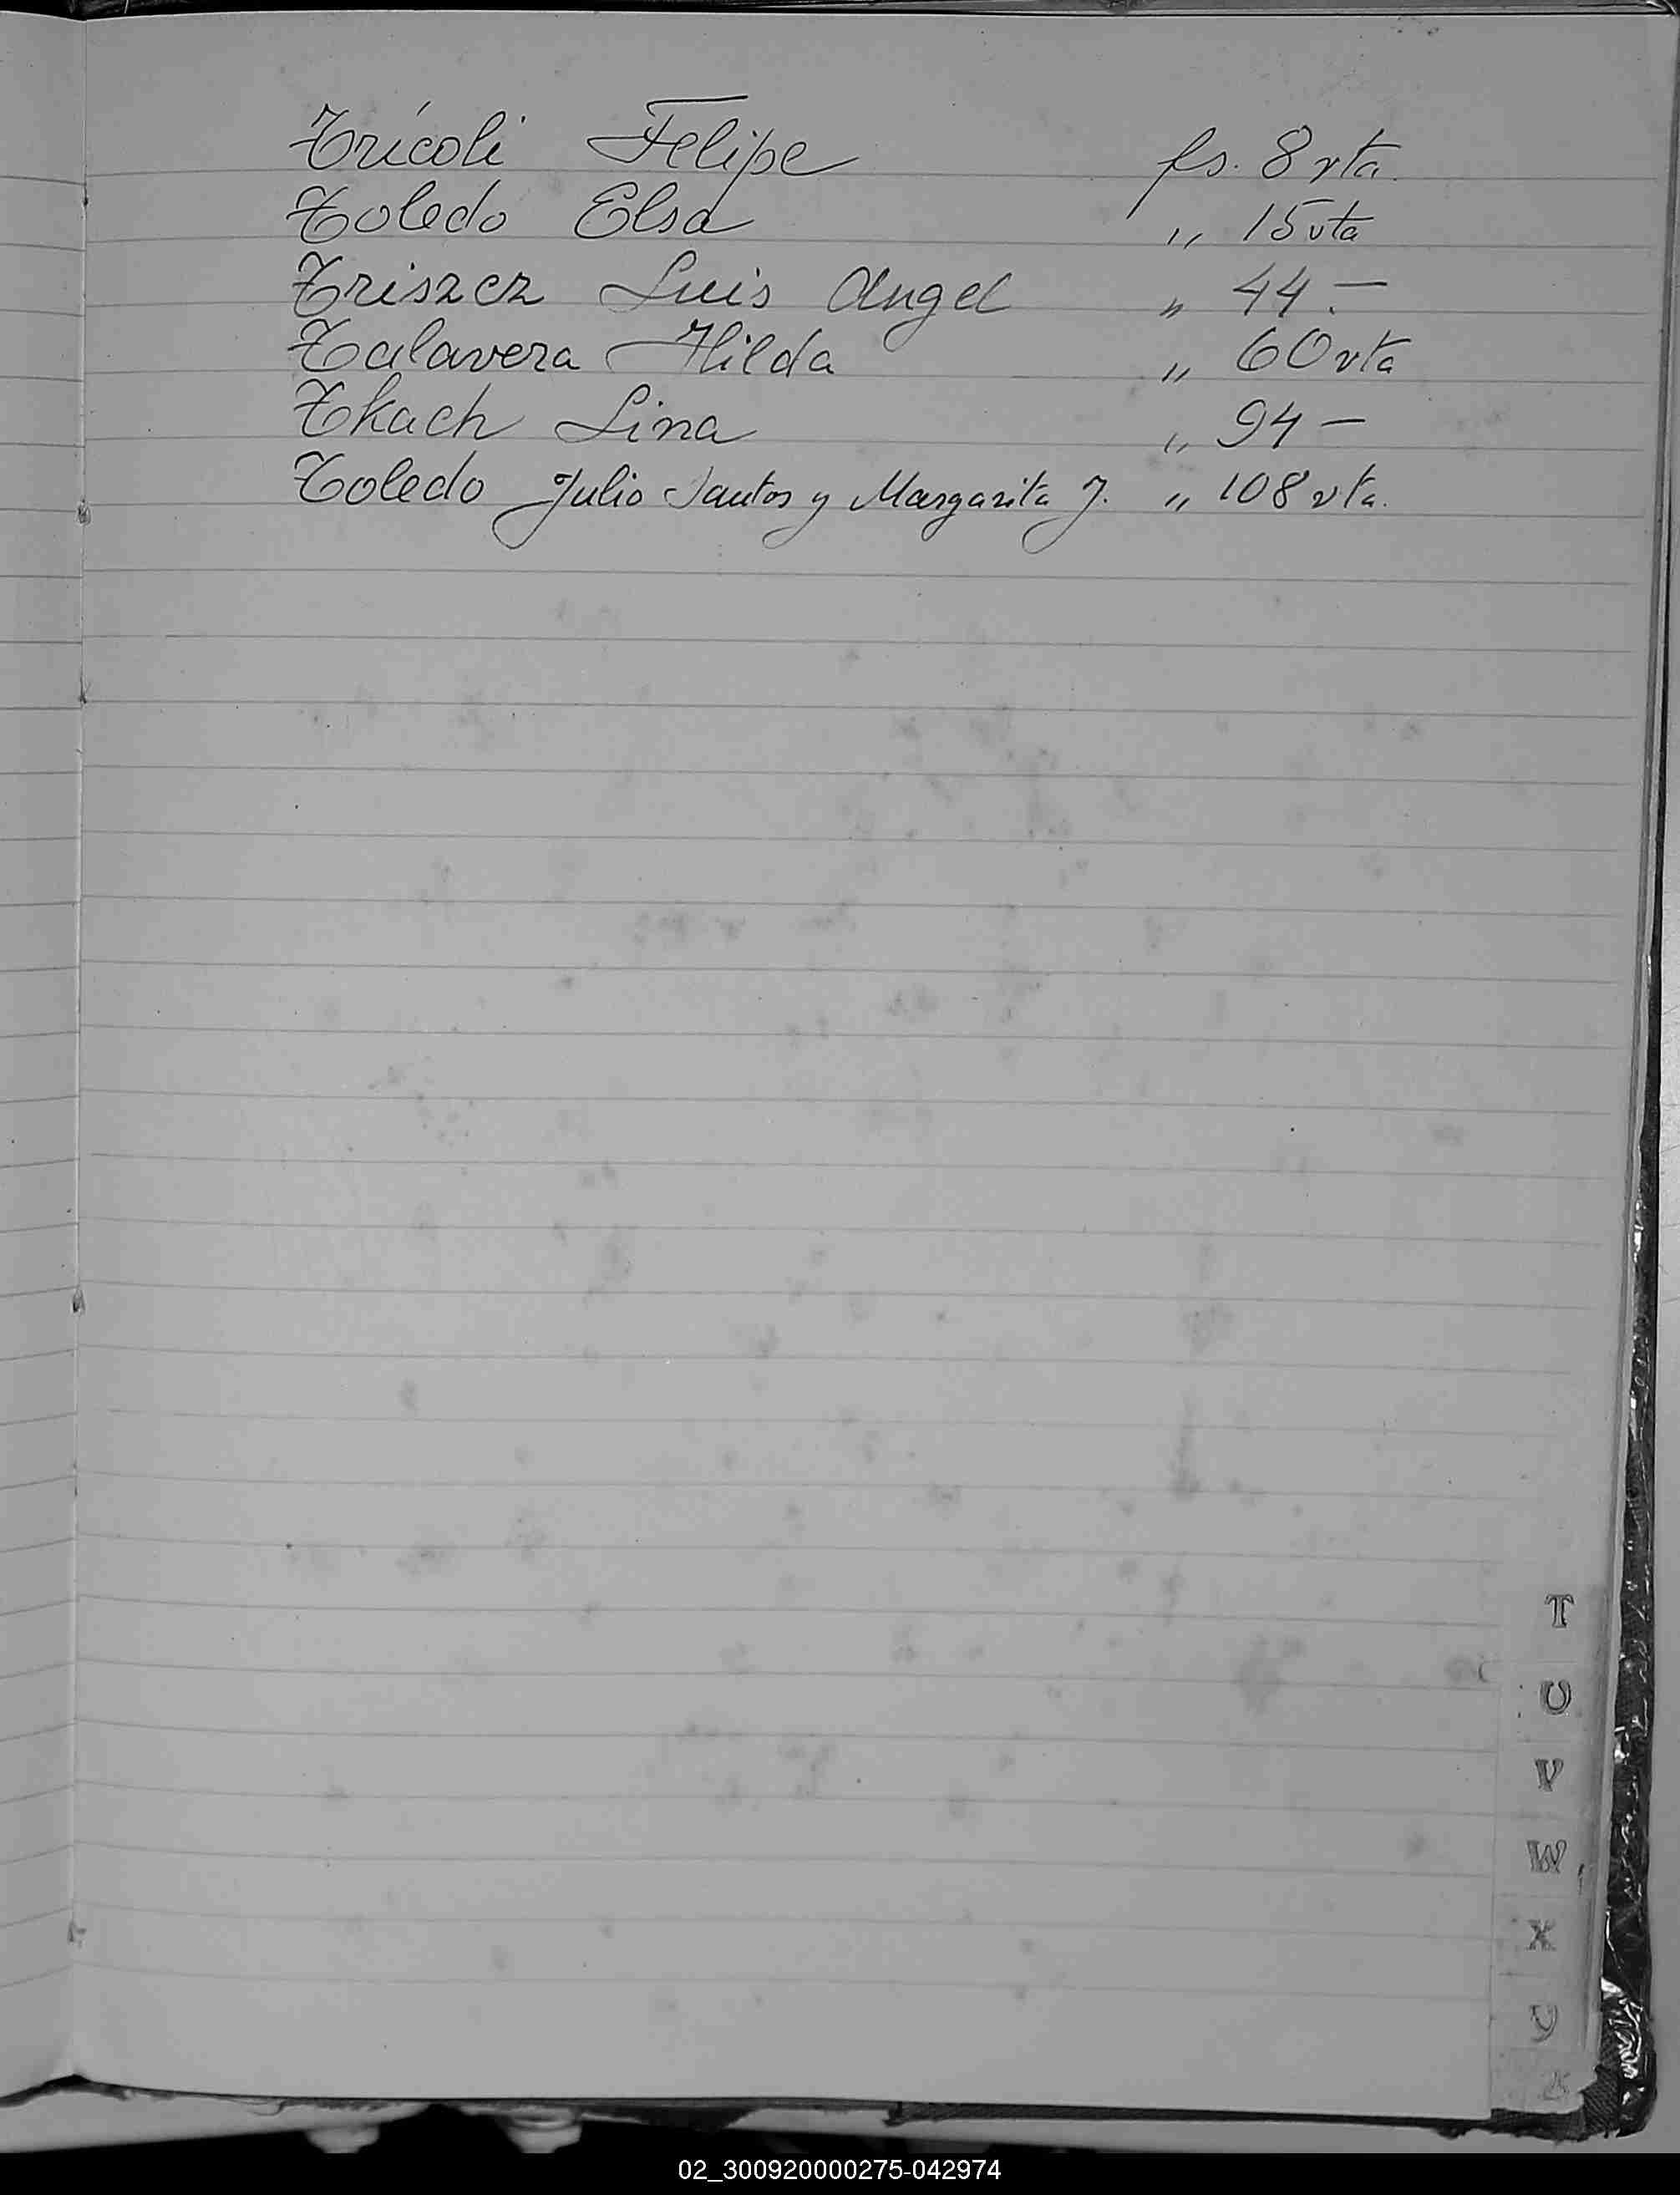 Trícoli Felipe fs. 8 vta.
Toledo Elsa " 15 vta
Triszcz Luis Angel " 44.—
Talavera Hilda " 60 vta
Tkach Lina " 94 —
Toledo Julio Santos y Margarita J. " 108 vta.
T
U
V
W
X
Y
Z
02_300920000275-042974